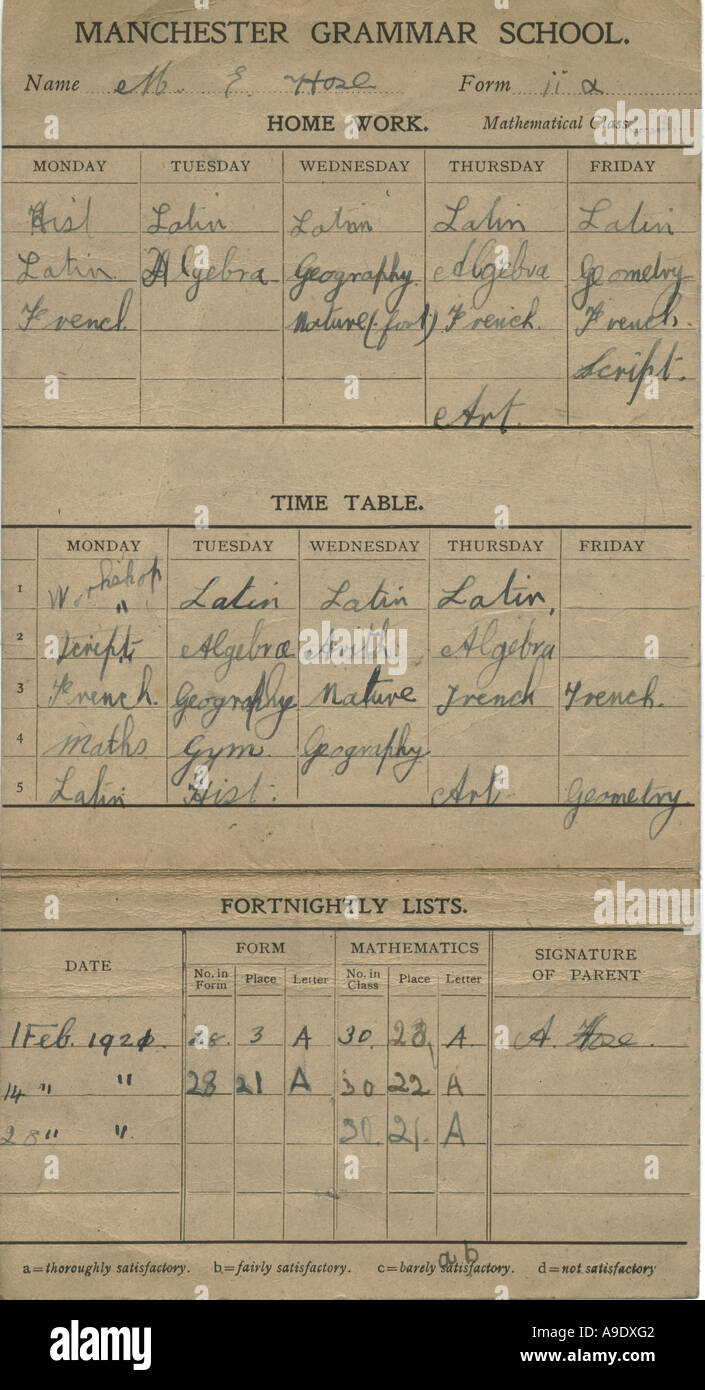 MANCHESTER GRAMMAR SCHOOL.
Name M. E. Hose Form ii α
HOME WORK. Mathematical Class
MONDAY TUESDAY WEDNESDAY THURSDAY FRIDAY
Hist Latin Latin Latin Latin
Latin Algebra Geography Algebra Geometry
French Nature (. fort) French. French.
Script.
Art.
TIME TABLE.
MONDAY TUESDAY WEDNESDAY THURSDAY FRIDAY
1 Workshop " Latin Latin Latin,
2 Script Algebra Arith. Algebra
3 French. Geography Nature French French.
4 Maths Gym. Geography
5 Latin Hist. Art Geometry
FORTNIGHTLY LISTS.
DATE FORM MATHEMATICS SIGNATURE OF PARENT
No. in Form Place Letter No. in Class Place Letter
1 Feb. 28. 3 A 30. 23 A. A. Hose.
14 " " 28 21 A 30 22 A
28 " " 30. 21. A
a b
a=thoroughly satisfactory. b=fairly satisfactory. c=barely satisfactory. d=not satisfactory
alamy
Image ID: A9DXG2
www.alamy.com